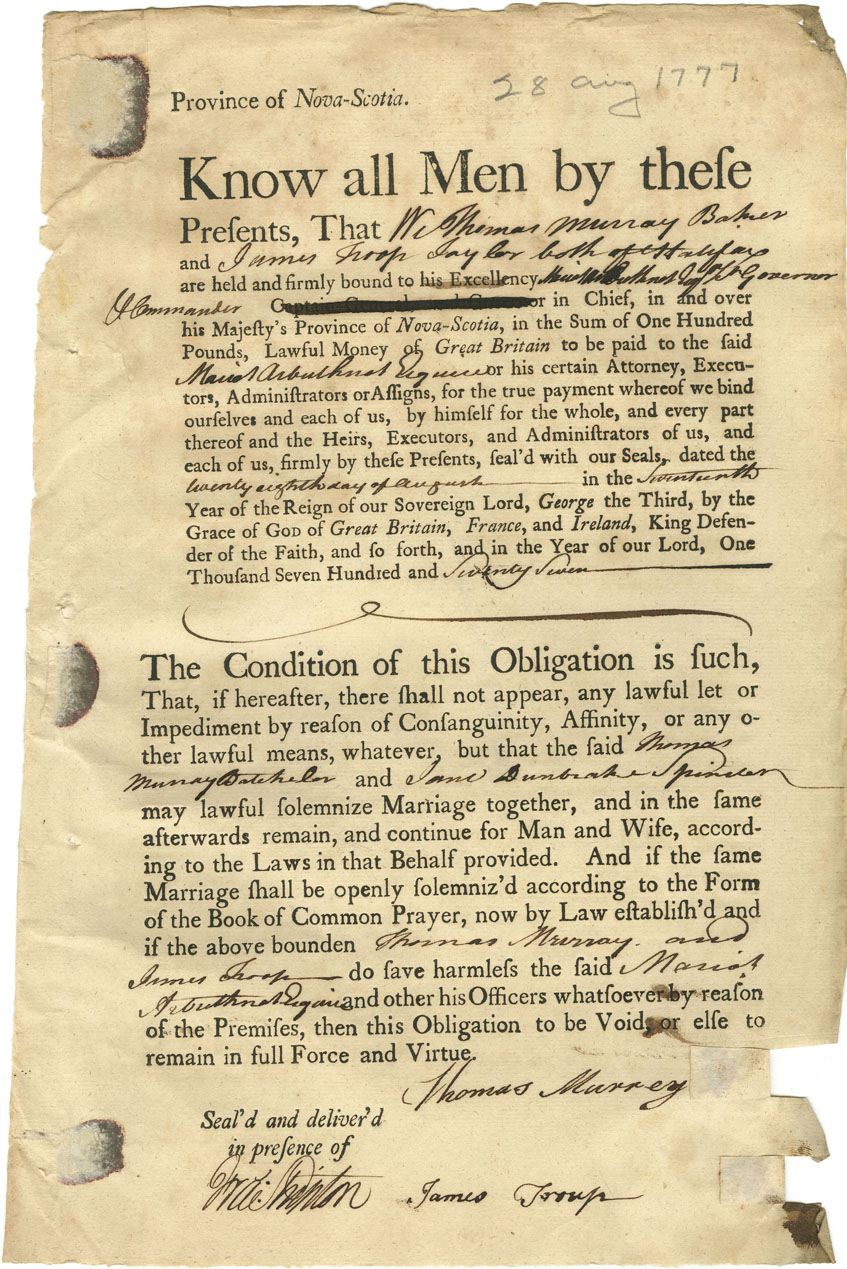 28 aug 1777
Province of Nova-Scotia.
Know all Men by theſe
Preſents, That We Thomas Murray Baker
and James Troop Taylor both of Halifax
are held and firmly bound to his Excellency Mariot Arbuthnot Esqr Lt Governor
& Commander or in Chief, in and over
his Majeſty's Province of Nova-Scotia, in the Sum of One Hundred
Pounds, Lawful Money of Great Britain to be paid to the ſaid
Mariot Arbuthnot Esquire or his certain Attorney, Execu-
tors, Adminiſtrators or Aſſigns, for the true payment whereof we bind
ourſelves and each of us, by himſelf for the whole, and every part
thereof and the Heirs, Executors, and Adminiſtrators of us, and
each of us, firmly by theſe Preſents, ſeal'd with our Seals, dated the
twenty eighth day of August in the Seventeenth
Year of the Reign of our Sovereign Lord, George the Third, by the
Grace of GOD of Great Britain, France, and Ireland, King Defen-
der of the Faith, and ſo forth, and in the Year of our Lord, One
Thouſand Seven Hundred and Seventy Seven
The Condition of this Obligation is ſuch,
That, if hereafter, there ſhall not appear, any lawful let or
Impediment by reaſon of Conſanguinity, Affinity, or any o-
ther lawful means, whatever, but that the ſaid Thomas
Murray Batchelor and Jane Dunbrake Spinster
may lawful ſolemnize Marriage together, and in the ſame
afterwards remain, and continue for Man and Wife, accord-
ing to the Laws in that Behalf provided. And if the ſame
Marriage ſhall be openly ſolemniz'd according to the Form
of the Book of Common Prayer, now by Law eſtabliſh'd and
if the above bounden Thomas Murray. and
James Troop do ſave harmleſs the ſaid Mariot
Arbuthnot Esquire and other his Officers whatſoever by reaſon
of the Premiſes, then this Obligation to be Void, or elſe to
remain in full Force and Virtue.
Thomas Murrey
Seal'd and deliver'd
in preſence of
James Troup